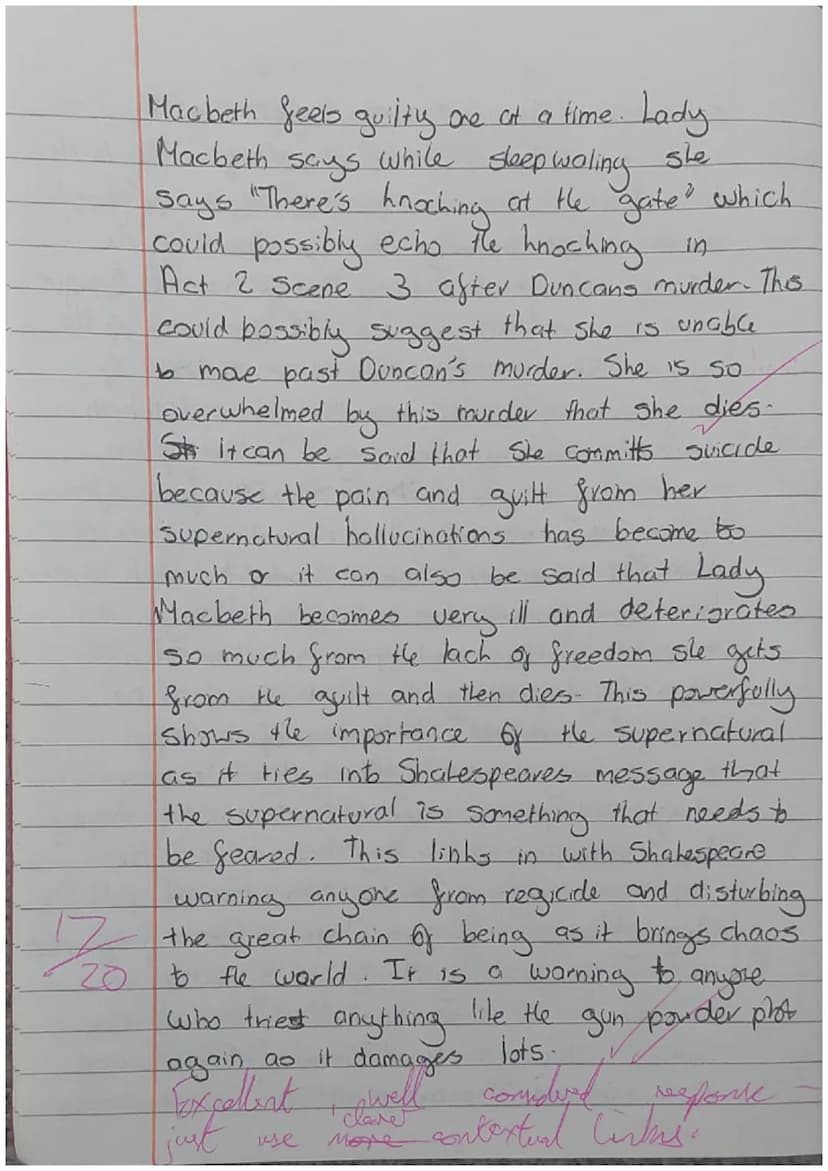 Macbeth feels guilty one at a time. Lady
Macbeth says while sleepwaling she
says "There's knocking at the gate" which
could possibly echo the knocking in
Act 2 Scene 3 after Duncans murder. This
could bossibly suggest that she is unable
to move past Duncan's murder. She is so
overwhelmed by this murder that she dies.
It can be said that she committs suicide
because the pain and guilt from her
supernatural hallucinations has become to
much or it can also be said that Lady
Macbeth becomes very ill and deteriorates
so much from the lack of freedom she gets
from the guilt and then dies. This powerfully
shows the importance of the supernatural
as it ties into Shakespeares message that
the supernatural is something that needs to
be feared. This links in with Shakespeare
warning anyone from regicide and disturbing
17/20
the great chain of being as it brings chaos
to the world. It is a warning to anyone
who tries anything like the gun powder plot
again as it damages lots.
Excellent, well considered response -
just use more clearer contextual links.